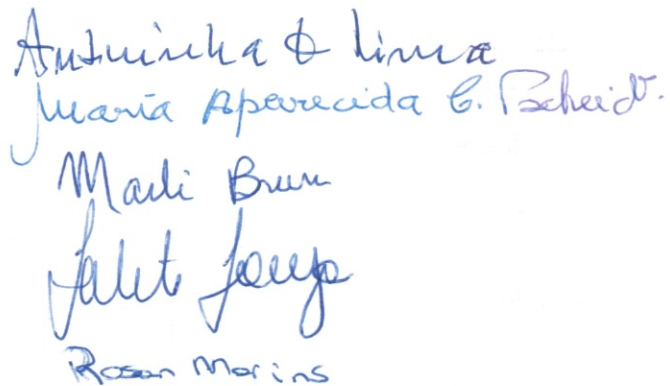 Antninha D Lima
Maria Aparecida C. Pscheidt.
Marli Brun
Salete
Rosan Marins